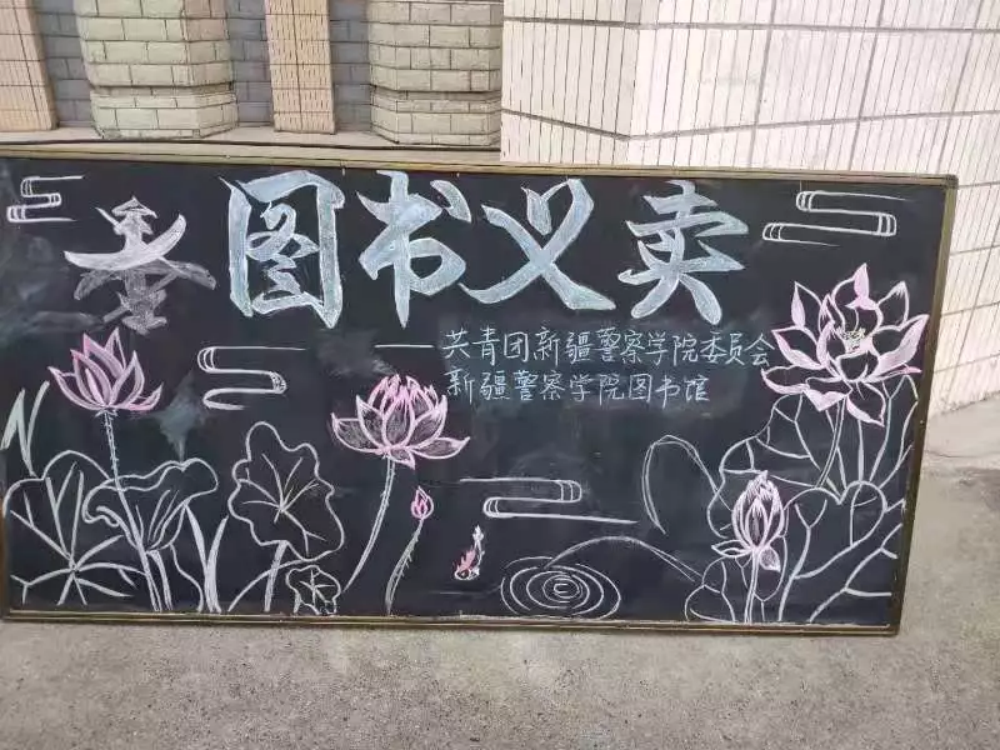 图书义卖
——共青团新疆警察学院委员会
新疆警察学院图书馆